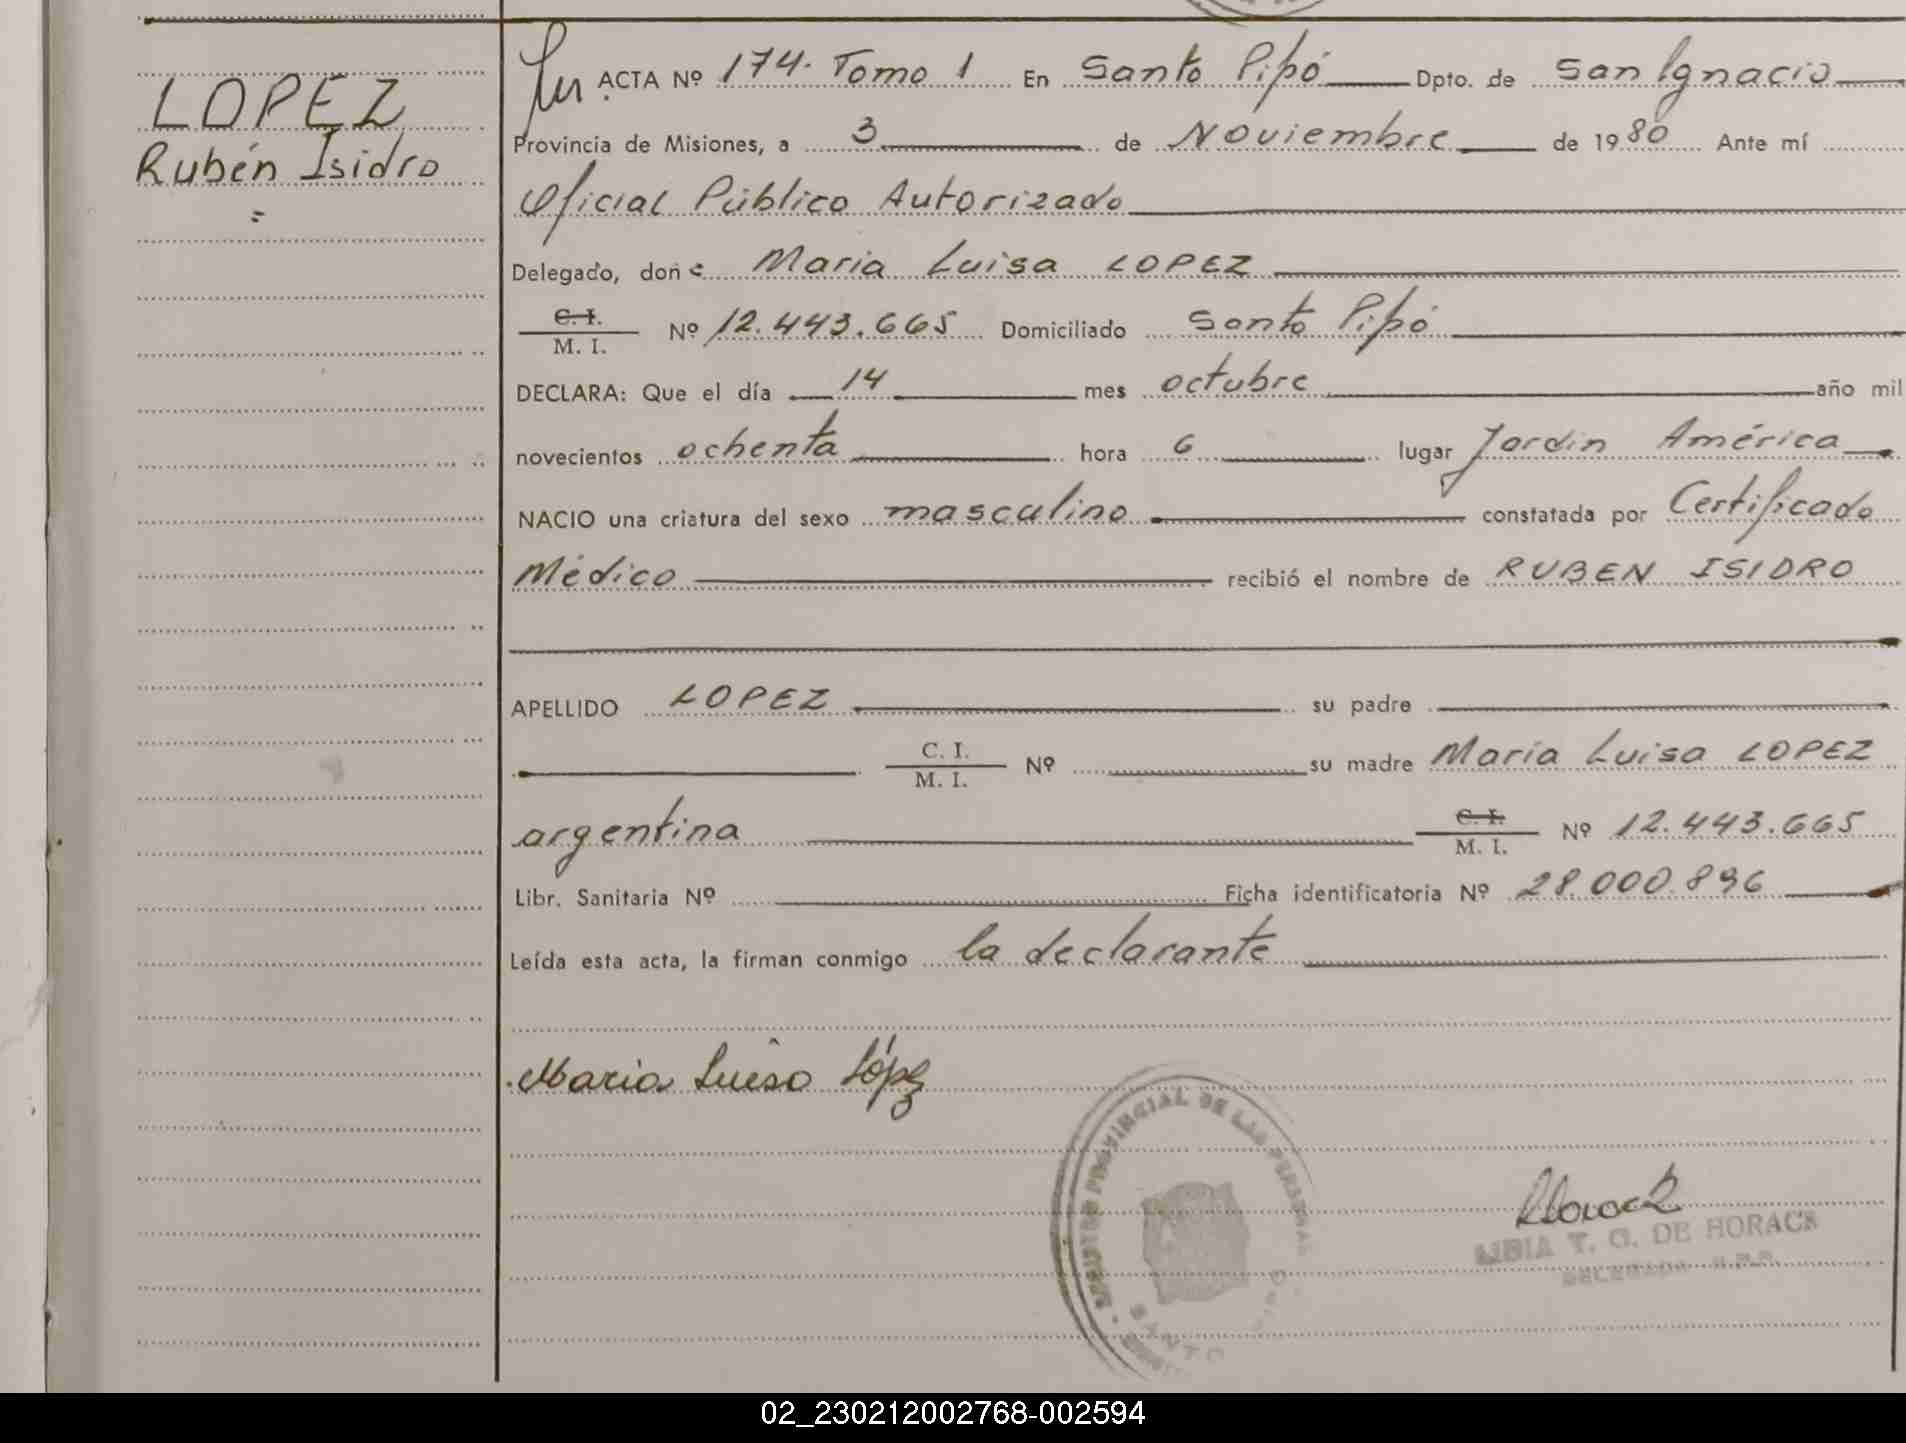 LOPEZ
Rubén Isidro
=
ACTA Nº 174. Tomo 1 En Santo Pipó Dpto. de San Ignacio
Provincia de Misiones, a 3 de Noviembre de 1980 Ante mí
Oficial Público Autorizado
Delegado, don María Luisa LOPEZ
C. I.
M. I. Nº 12.443.665 Domiciliado Santo Pipó
DECLARA: Que el día 14 mes octubre año mil
novecientos ochenta hora 6 lugar Jardín América
NACIO una criatura del sexo masculino constatada por Certificado
Médico recibió el nombre de RUBEN ISIDRO
APELLIDO LOPEZ su padre
C. I.
M. I. Nº su madre María Luisa LOPEZ
argentina C. I.
M. I. Nº 12.443.665
Libr. Sanitaria Nº Ficha identificatoria Nº 28.000.896
Leída esta acta, la firman conmigo la declarante
Maria Luisa López
PROVINCIAL DE LAS PERSONAS
SANTO PIPO
LIBIA T. G. DE HORACK
DELEGADA R.P.P.
02_230212002768-002594